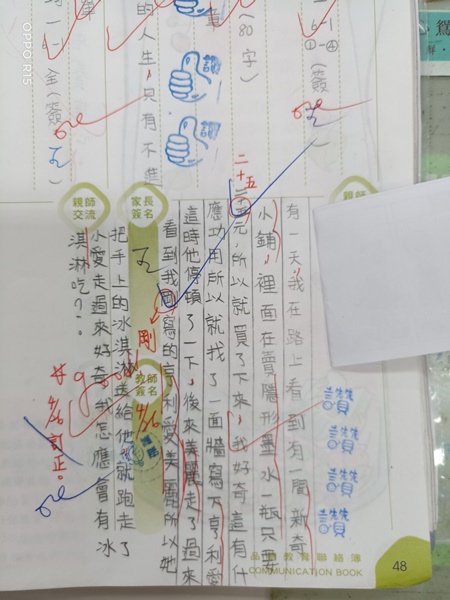 6-1
①-④
(簽
(80字)
章
讚
讚
的人生，只有不進
6-1
全(簽
親師
有一天，我在路上看到有一間新奇
小鋪，裡面在賣隱形墨水一瓶只要
二十五
元，所以就買了下來，我好奇這有什
應功用所以就找了一面牆寫下亨利愛
這時他停頓了一下，後來美麗走了過來
看到我剛寫的亨利愛美麗所以她
剛
家長
簽名
教師
簽名
4/26
把手上的冰淇淋送給他就跑走了
小愛走過來好奇我怎應會有冰
淇淋吃?
親師
交流
4/26訂正。
讚
讚
讚
讚
品德教育聯絡簿
COMMUNICATION BOOK
48
OPPO R15